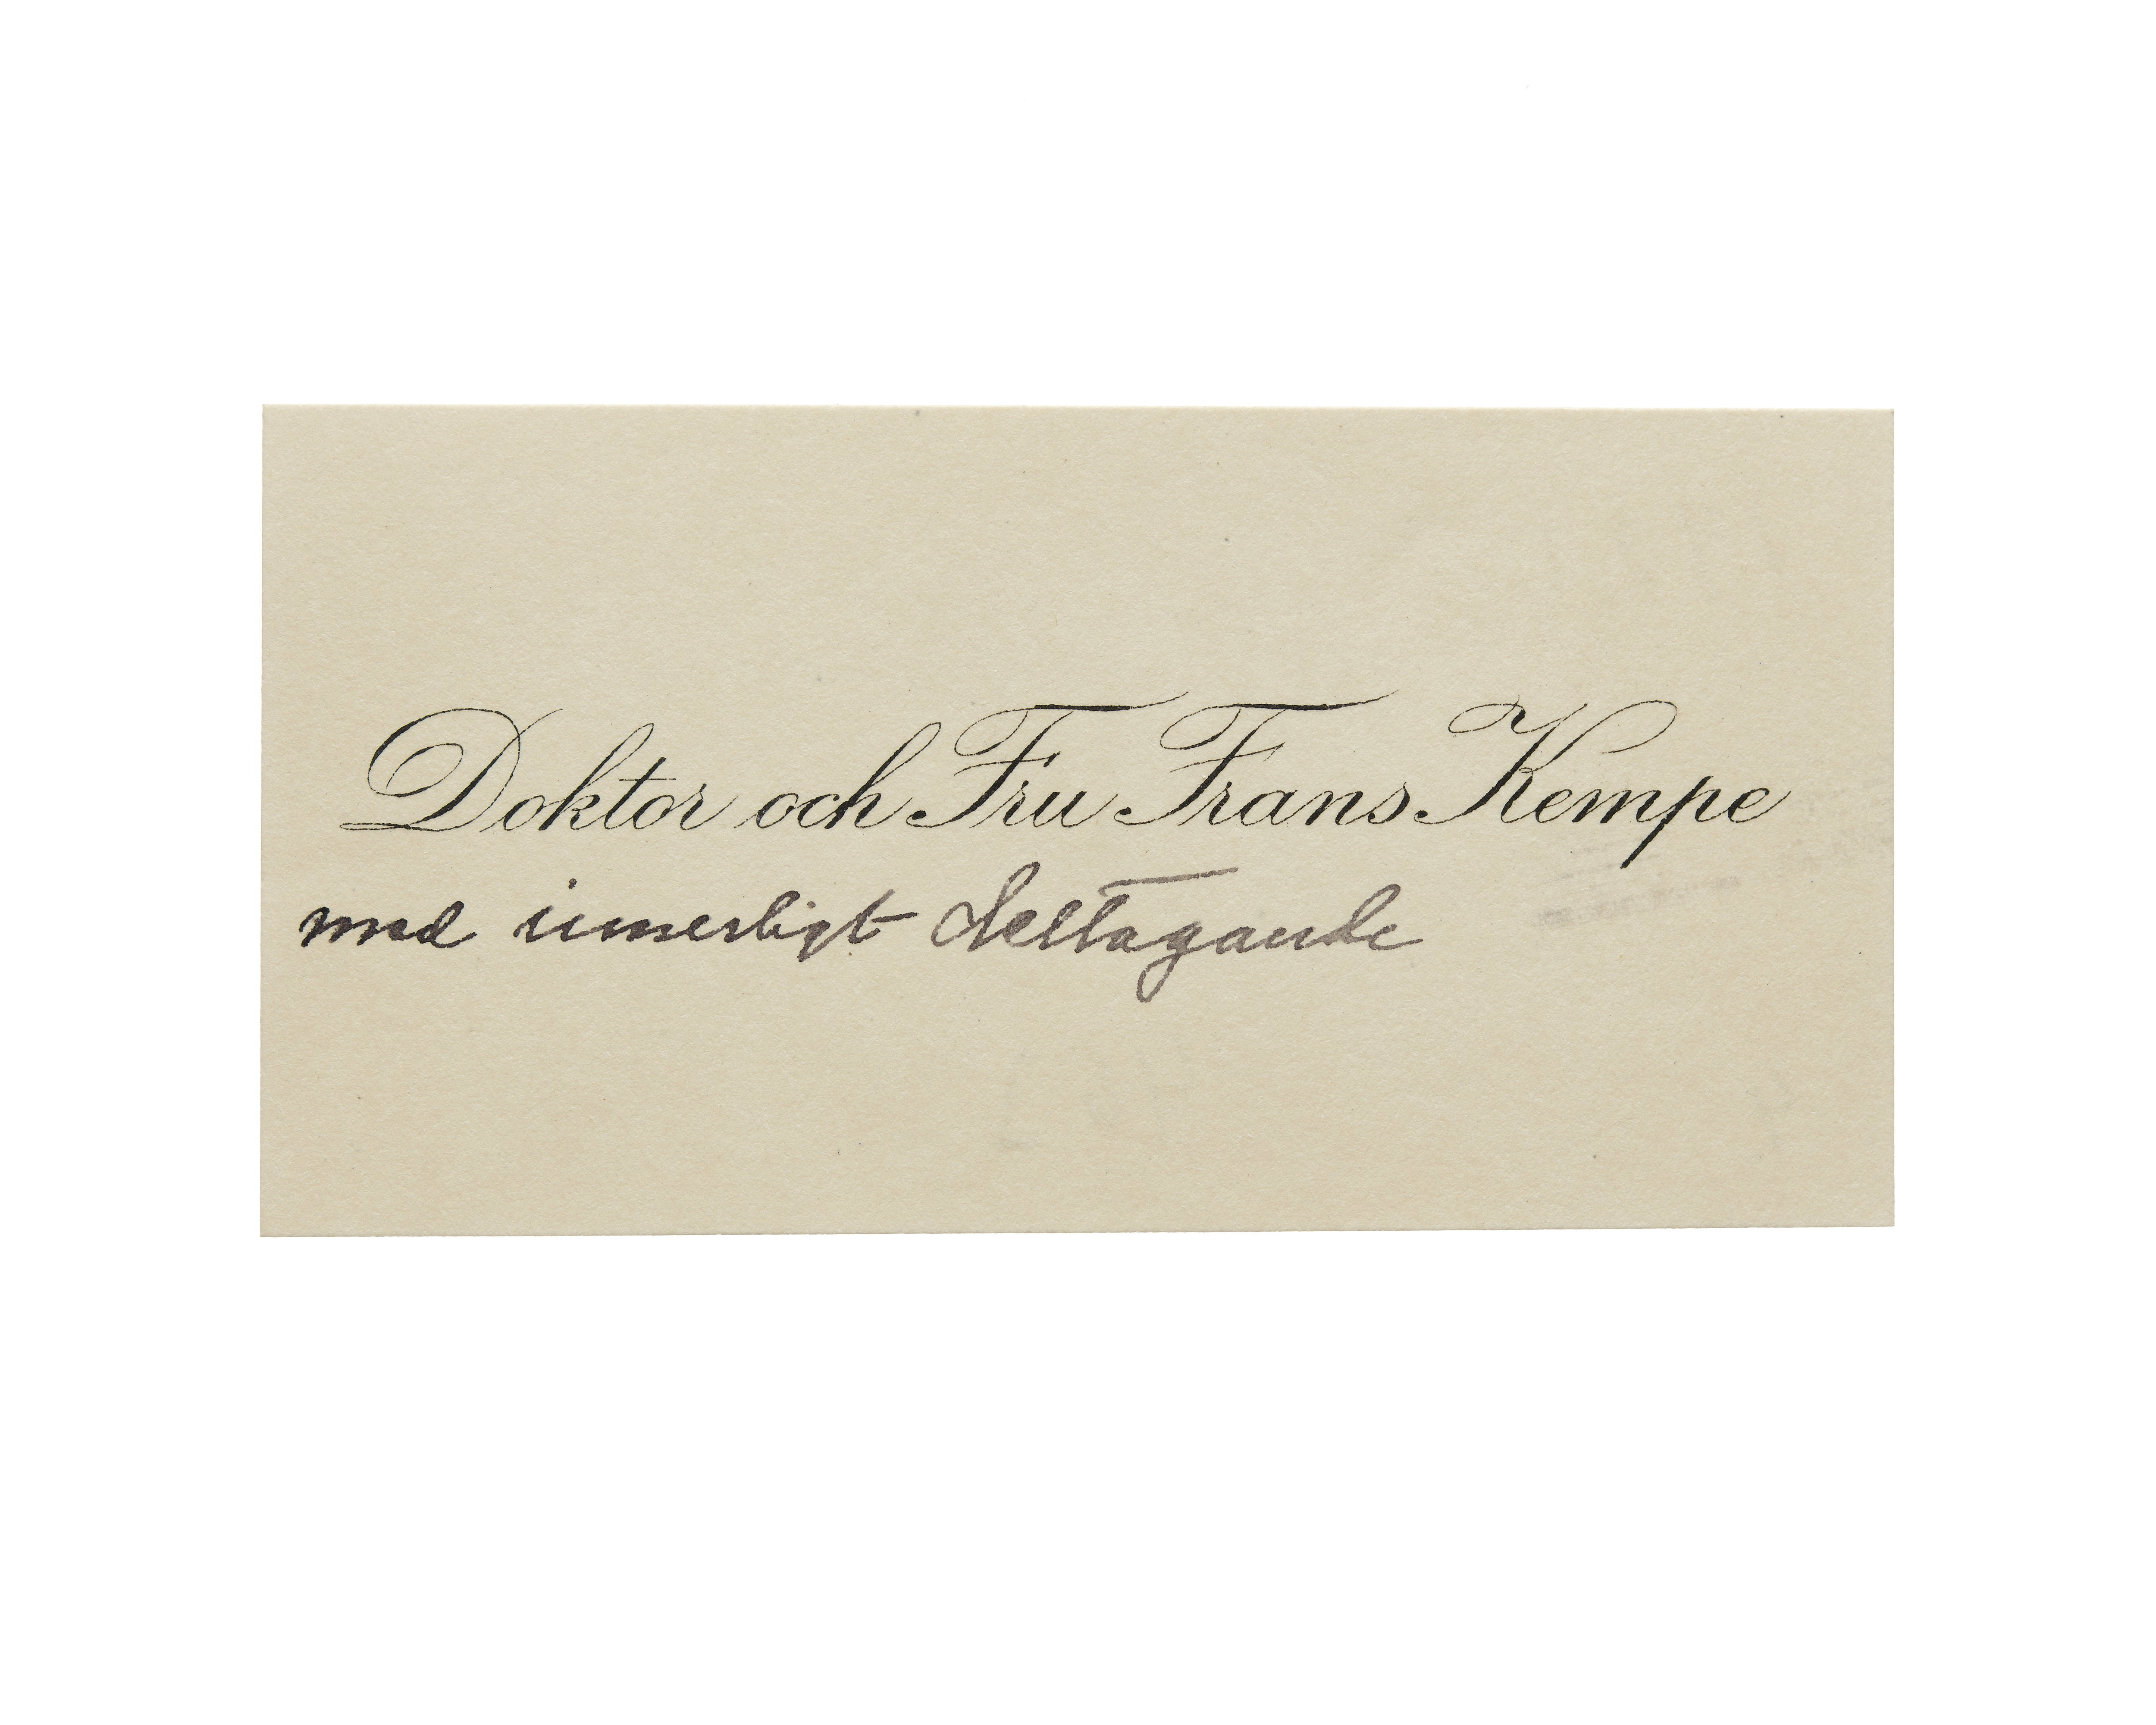 Doktor och Fru Frans Kempe
med innerligt deltagande